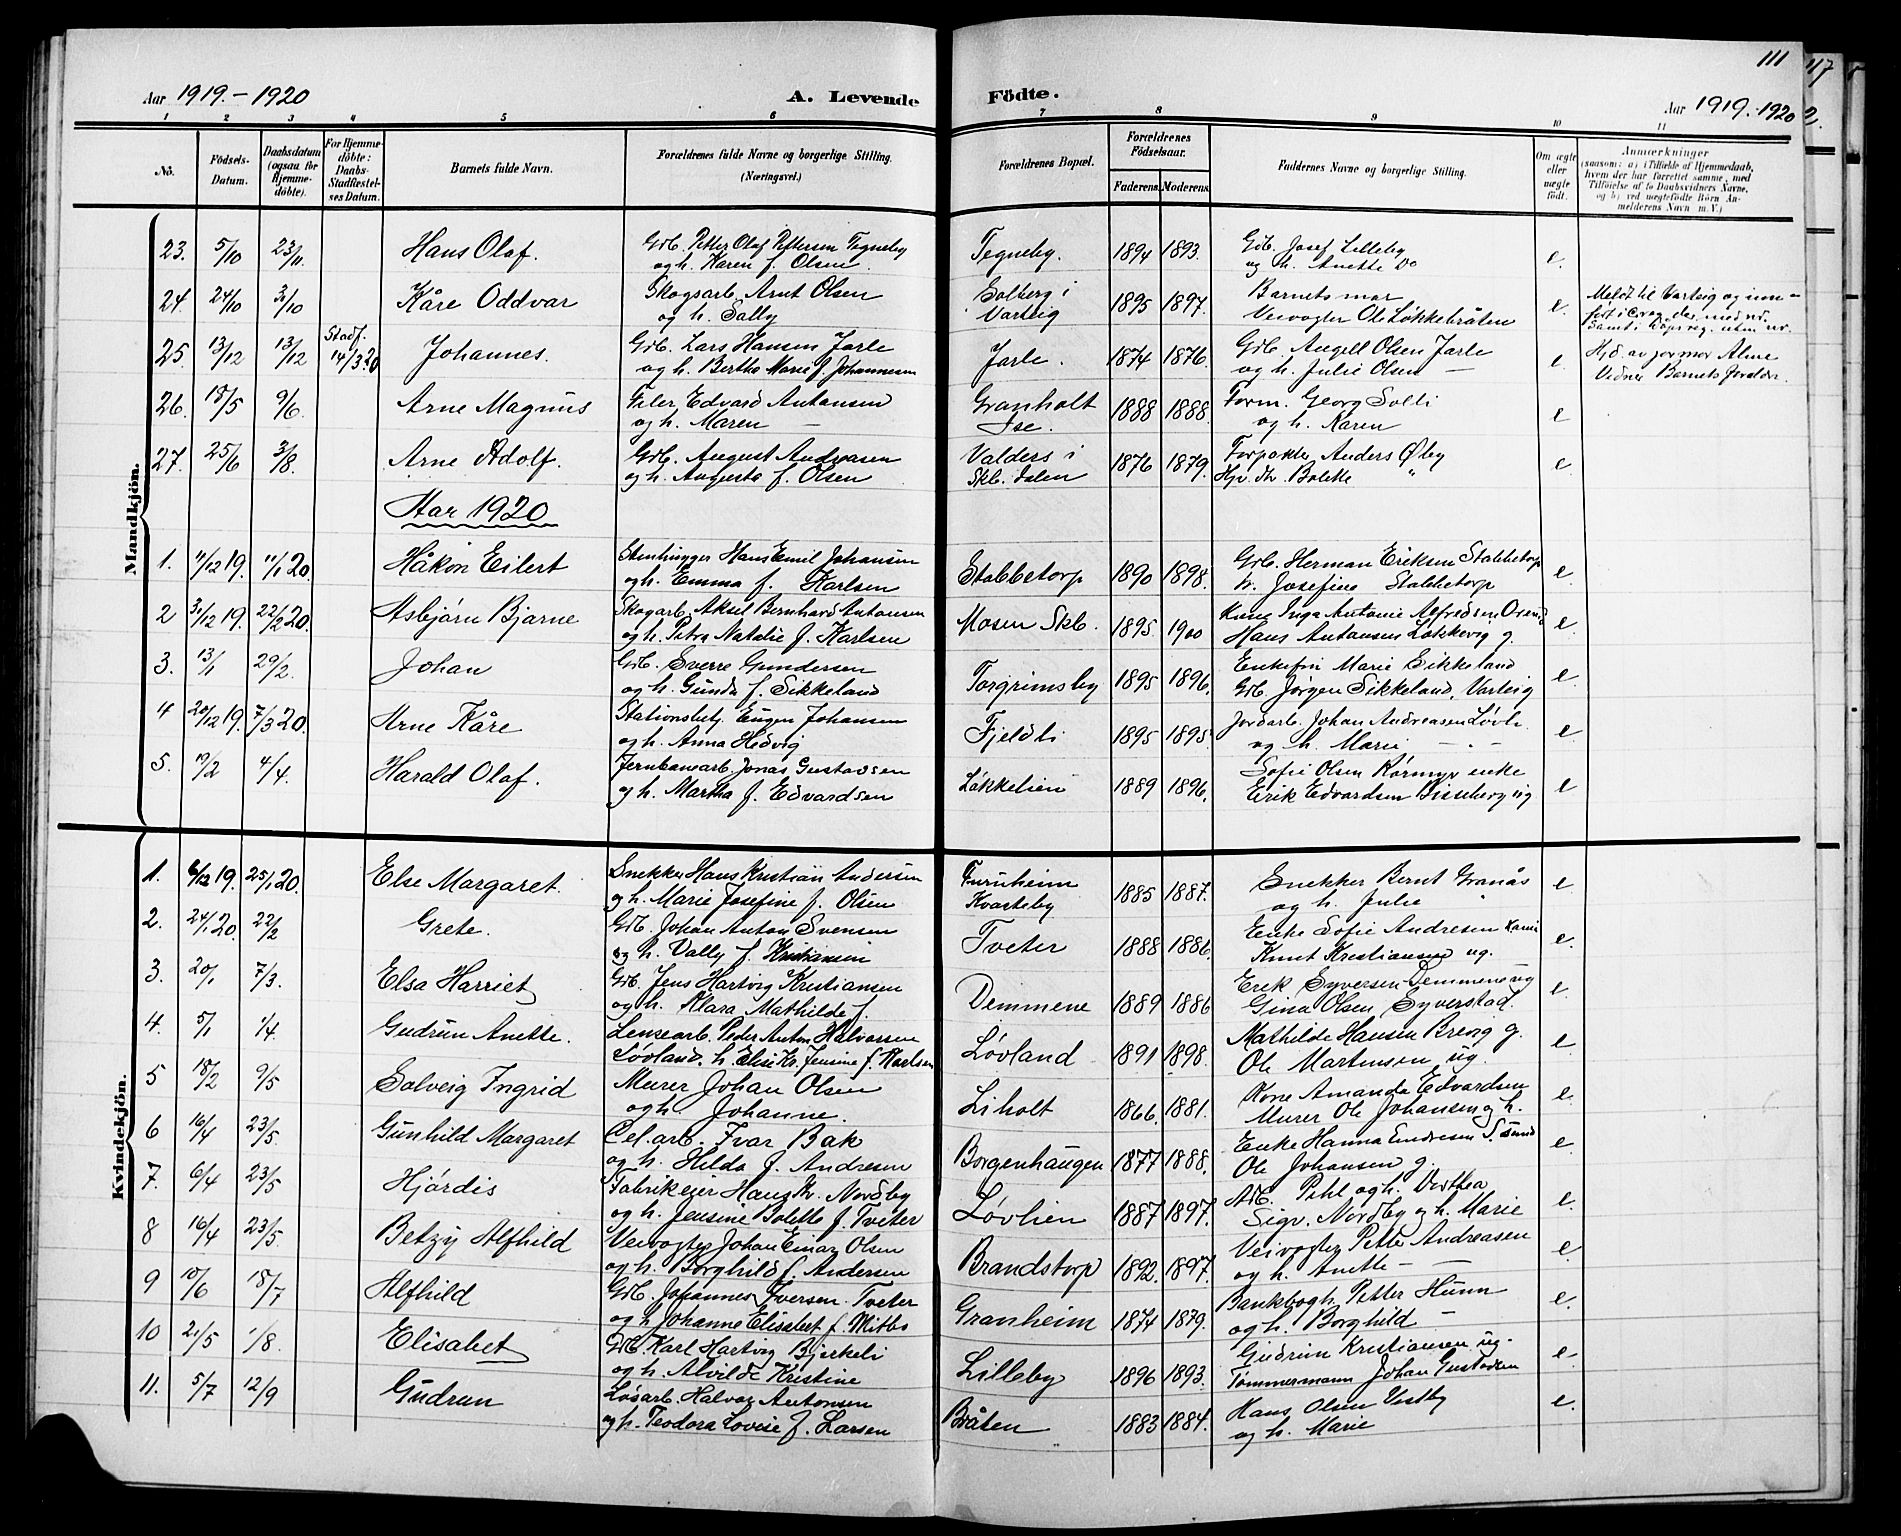 111
Aar 1919.-1920
A. Levende
Födte.
Aar 1919.-1920
1 2 3 4 5 6 7 8 9 10 11
No.
Födsels-
Datum.
Daabsdatum
(ogsaa for
Hjemme-
döbte).
For Hjemme-
döbte:
Daabs-
Stadfæstel-
ses Datum.
Barnets fulde Navn.
Forældrenes fulde Navne og borgerlige Stilling.
(Næringsvei.)
Forældrenes Bopæl.
Forældrenes
Födselsaar.
Faderens. Moderens.
Faddernes Navne og borgerlige Stilling.
Om ægte
eller
uægte
födt.
Anmærkninger
(saasom: a) i Tilfælde af Hjemmedaab,
hvem der har forrettet samme, med
Tilföielse af to Daabsvidners Navne,
og b) ved uægtefödte Börn An-
melderens Navn m. V.)
Mandkjön.
23. 5/10 23/11. Hans Olaf. Grb. Petter Olaf Pettersen Tegneby Tegneby. 1894 1893. Grb. Josef Lilleby e.
og h. Karen f. Olsen. og h. Anette Do
24. 24/10 31/10 Kåre Oddvar Skogsarb. Arnt Olsen Solberg i 1895 1897. Barnets mor e.
og h. Sally Varteig Veivogter Ole Løkkebråten
Meldt til Varteig og inn-
25. 13/12 13/12 Stadf. 14/3 20 Johannes. Grb. Lars Hansen Jarle Jarle. 1874 1876. Grb. Angell Olsen Jarle e
og h. Berthe Marie f. Johannesen og h. Julie Olsen —
Hjd. av jormor Alme
Vidner Barnets foreldre.
26. 18/5 9/6. Arne Magnus Filer Edvard Antonsen Granholt 1888 1888. Form. Georg Solli e
og h. Maren — Ise. og h. Karen
27. 25/6 3/8. Arne Adolf. Grb. August Andreasen Valders i 1876 1879. Forpakter Anders Øby e.
og h. Augusta f. Olsen Skb. dalen Hjv. Bolette "
Aar 1920
1. 11/12 19. 11/1 20. Håkon Eilert Stenhugger Hans Emil Johansen Stabbetorp 1890 1898. Grb. Herman Eriksen Stabbetorp e
og h. Emma f. Karlsen h. Josefine Stabbetorp
2 31/12 19. 22/2 20. Asbjørn Bjarne Skogarb. Aksel Bernhard Antonsen Mosen Skb. 1895. 1900 Kone Inga Antonie Alfredsen e.
og h. Petra Natalie f. Karlsen Hans Antonsen Løkkevig g.
3. 13/1 29/2. Johan Grb. Sverre Gundersen Torgrimsby 1895 1896. Enkefru Marie Sikkeland e
og h. Gunda f. Sikkeland Grb. Jørgen Sikkeland, Varteig
4 20/12 19. 7/3 20. Arne Kåre Stationsbetj. Eugen Johansen Fjeldli 1895 1895 Jordarb. Johan Andreasen Løvli e
og h. Anna Hedvig og h. Marie — " —
5. 19/2 4/4. Harald Olaf. Jernbanearb. Jonas Gustavsen Løkkelien 1889 1896. Sofie Olsen Kørmyr enke e
og h. Martha f. Edvardsen Erik Edvardsen Bisseberg ug
Kvindekjön.
1. 6/12 19. 25/1 20. Else Margaret. Snekker Hans Kristian Andersen Furuheim 1885 1887. Snekker Bernt Granås e
og h. Marie Josefine f. Olsen Kvasteby og h. Julie "
2. 24/1 20. 22/2 Grete. Grb. Johan Anton Svensen Tveter 1888 1886. Enke Sofie Andresen e.
og h. Vally f. Kristiansen Knut Kristiansen ug.
3. 20/1 7/3. Elsa Harriet Grb. Jens Hartvig Kristiansen Demmene 1889 1886 Erik Syversen Demmene ug e.
og h. Klara Mathilde f. Gina Olsen Syverstad
4. 5/1 1/4 Gudrun Anette. Lensearb. Peder Anton Halvorsen Løvland 1891 1898. Mathilde Hansen Brevig g. e
Løvland. h Elise Kr. Jensine f. Karlsen Ole Martinsen ug.
5 18/2 9/5 Solveig Ingrid Murer Johan Olsen Liholt 1866. 1881. Kone Amanda Edvardsen e.
og h Johanne. Murer Ole Johansen og h.
6 16/4 23/5. Gunhild Margaret Cel. arb. Ivar Bak Borgenhaugen 1877 1888. Enke Hanna Endresen S.sund e.
og h. Hilda f. Andresen Ole Johansen g.
7. 6/4 23/5 Hjørdis Fabrikeier Hans Kr. Nordby Løvlien 1887 1897. Arb. Pehl og h. Verthea e.
og h. Jensine Bolette f. Tveter Sigv. Nordby og h. Marie
8 16/4 23/5. Betzy Alfhild Veivogter Johan Einar Olsen Brandstorp 1892. 1897. Veivogter Petter Andreasen e
og h. Borghild f. Andersen og h. Anette — —
9 10/6 18/7 Alfhild Grb. Johannes Iversen Tveter Granheim 1874 1879. Bankbogh. Petter Hunn e.
og h Johanne Elisabet f. Mitbo og h. Borghild —
10 21/5 1/8. Elisabet Grb. Karl Hartvig Bjerkeli Lilleby 1896 1893. Gudrun Kristiansen ug. e
og h. Alvilde Kristine Tømmermann Johan Gustavsen
11. 5/7 12/9 Gudrun Løsarb. Halvor Antonsen Bråten 1883 1884. Hans Olsen Vestby e.
og h. Teodora Lovise f. Larsen og h. Marie